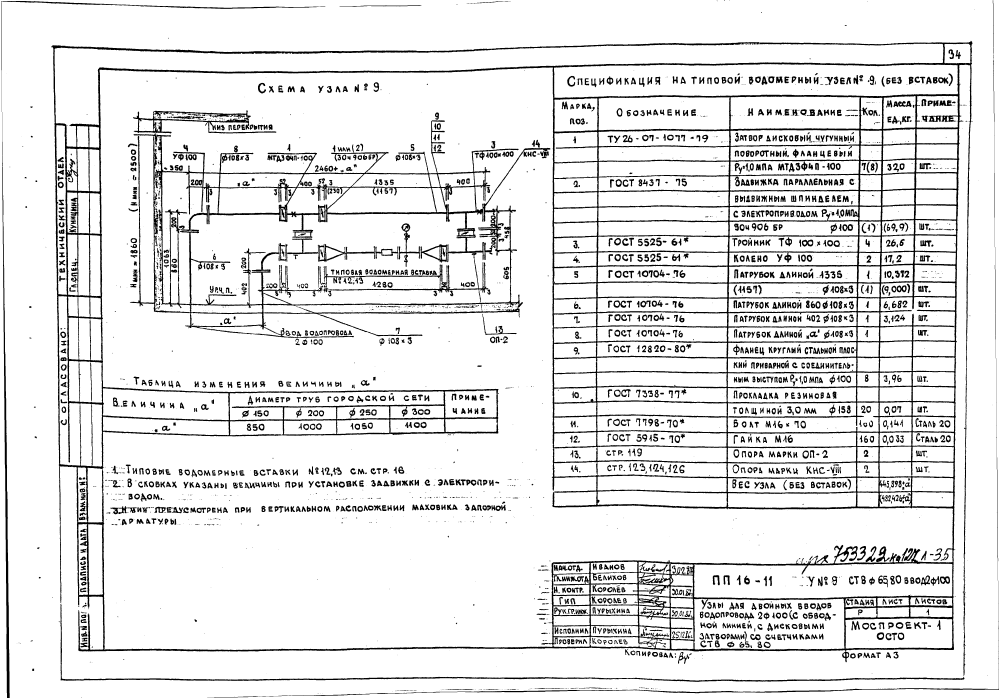 94
Схема узла № 9
низ перекрытия
(Нмин = 2500)
Нмин = 1860
4
УФ100
8
ф108×3
1
МТДЗФ4П-100
1 или (2)
(30ч906БР)
5
ф108×3
9
10
11
12
3
ТФ100×100
14
КНС-VIII
350
2460+„а"
200
„а"
400
1335
(1157)
400
200
(230)
1063
860
200
6
ф108×3
Ур.ч.п.
402
200
400
Типовая водомерная вставка
№12,13
1280
400
605
„а"
Ввод водопровода
2ф100
7
ф108×3
13
ОП-2
Таблица изменения величины „а"
Величина „а"
Диаметр труб городской сети
Приме-
чание
ф 150
ф 200
ф 250
ф 300
„а"
850
1000
1050
1100
1. Типовые водомерные вставки №12,13 см. стр. 16
2. В скобках указаны величины при установке задвижки с электропри-
водом.
3. Н мин предусмотрена при вертикальном расположении маховика запорной
арматуры
Спецификация на типовой водомерный узел № 9. (без вставок)
Марка, поз.
Обозначение
Наименование
Кол.
Масса, ед., кг.
Приме-
чание
1 ТУ 26-07-1077-79 Затвор дисковый, чугунный
поворотный, фланцевый
Ру=1,0МПа МТДЗФ4П-100 7(8) 32,0 шт.
2. ГОСТ 8437-75 Задвижка параллельная с
выдвижным шпинделем,
с электроприводом Ру=1,0МПа
30ч906БР ф100 (1) (69,9) шт.
3. ГОСТ 5525-61* Тройник ТФ 100×100 4 26,6 шт.
4. ГОСТ 5525-61* Колено УФ 100 2 17,2 шт.
5 ГОСТ 10704-76 Патрубок длиной 1335 1 10,372
(1157) ф108×3 (1) (9,000) шт.
6. ГОСТ 10704-76 Патрубок длиной 860 ф108×3 1 6,682 шт.
7. ГОСТ 10704-76 Патрубок длиной 402 ф108×3 1 3,124 шт.
8. ГОСТ 10704-76 Патрубок длиной „а" ф108×3 1 шт.
9. ГОСТ 12820-80* Фланец круглый стальной плос-
кий приварной с соединитель-
ным выступом Ру=1,0МПа ф100 8 3,96 шт.
10. ГОСТ 7338-77* Прокладка резиновая
толщиной 3,0мм ф158 20 0,07 шт.
11. ГОСТ 7798-70* Болт М16×70 160 0,141 Сталь 20
12. ГОСТ 5915-70* Гайка М16 160 0,033 Сталь 20
13. стр. 119 Опора марки ОП-2 2 шт.
14. стр. 123,124,126 Опора марки КНС-VIII 2 шт.
Вес узла (без вставок)
арх 753329
л-35
Нач.отд. Иванов
Гл.инж.отд Белихов
Н. контр. Королёв
ГИП Королев
Рук.гр.инж. Пурыхина
Исполнил Пурыхина
Проверил Королев
ПП 16-11 У № 9 СТВ ф 65,80 ввод 2ф100
Узлы для двойных вводов
водопровода 2ф100 (с обвод-
ной линией, с дисковыми
затворами) со счетчиками
СТВ ф 65,80
Стадия
Лист
Листов
Р
1
Моспроект-1
ОСТО
Копировал:
Формат А3
Согласовано:
Технический отдел
Гл.спец.
Куницина
Взам.инв.№
Подпись и дата
Инв.№ по